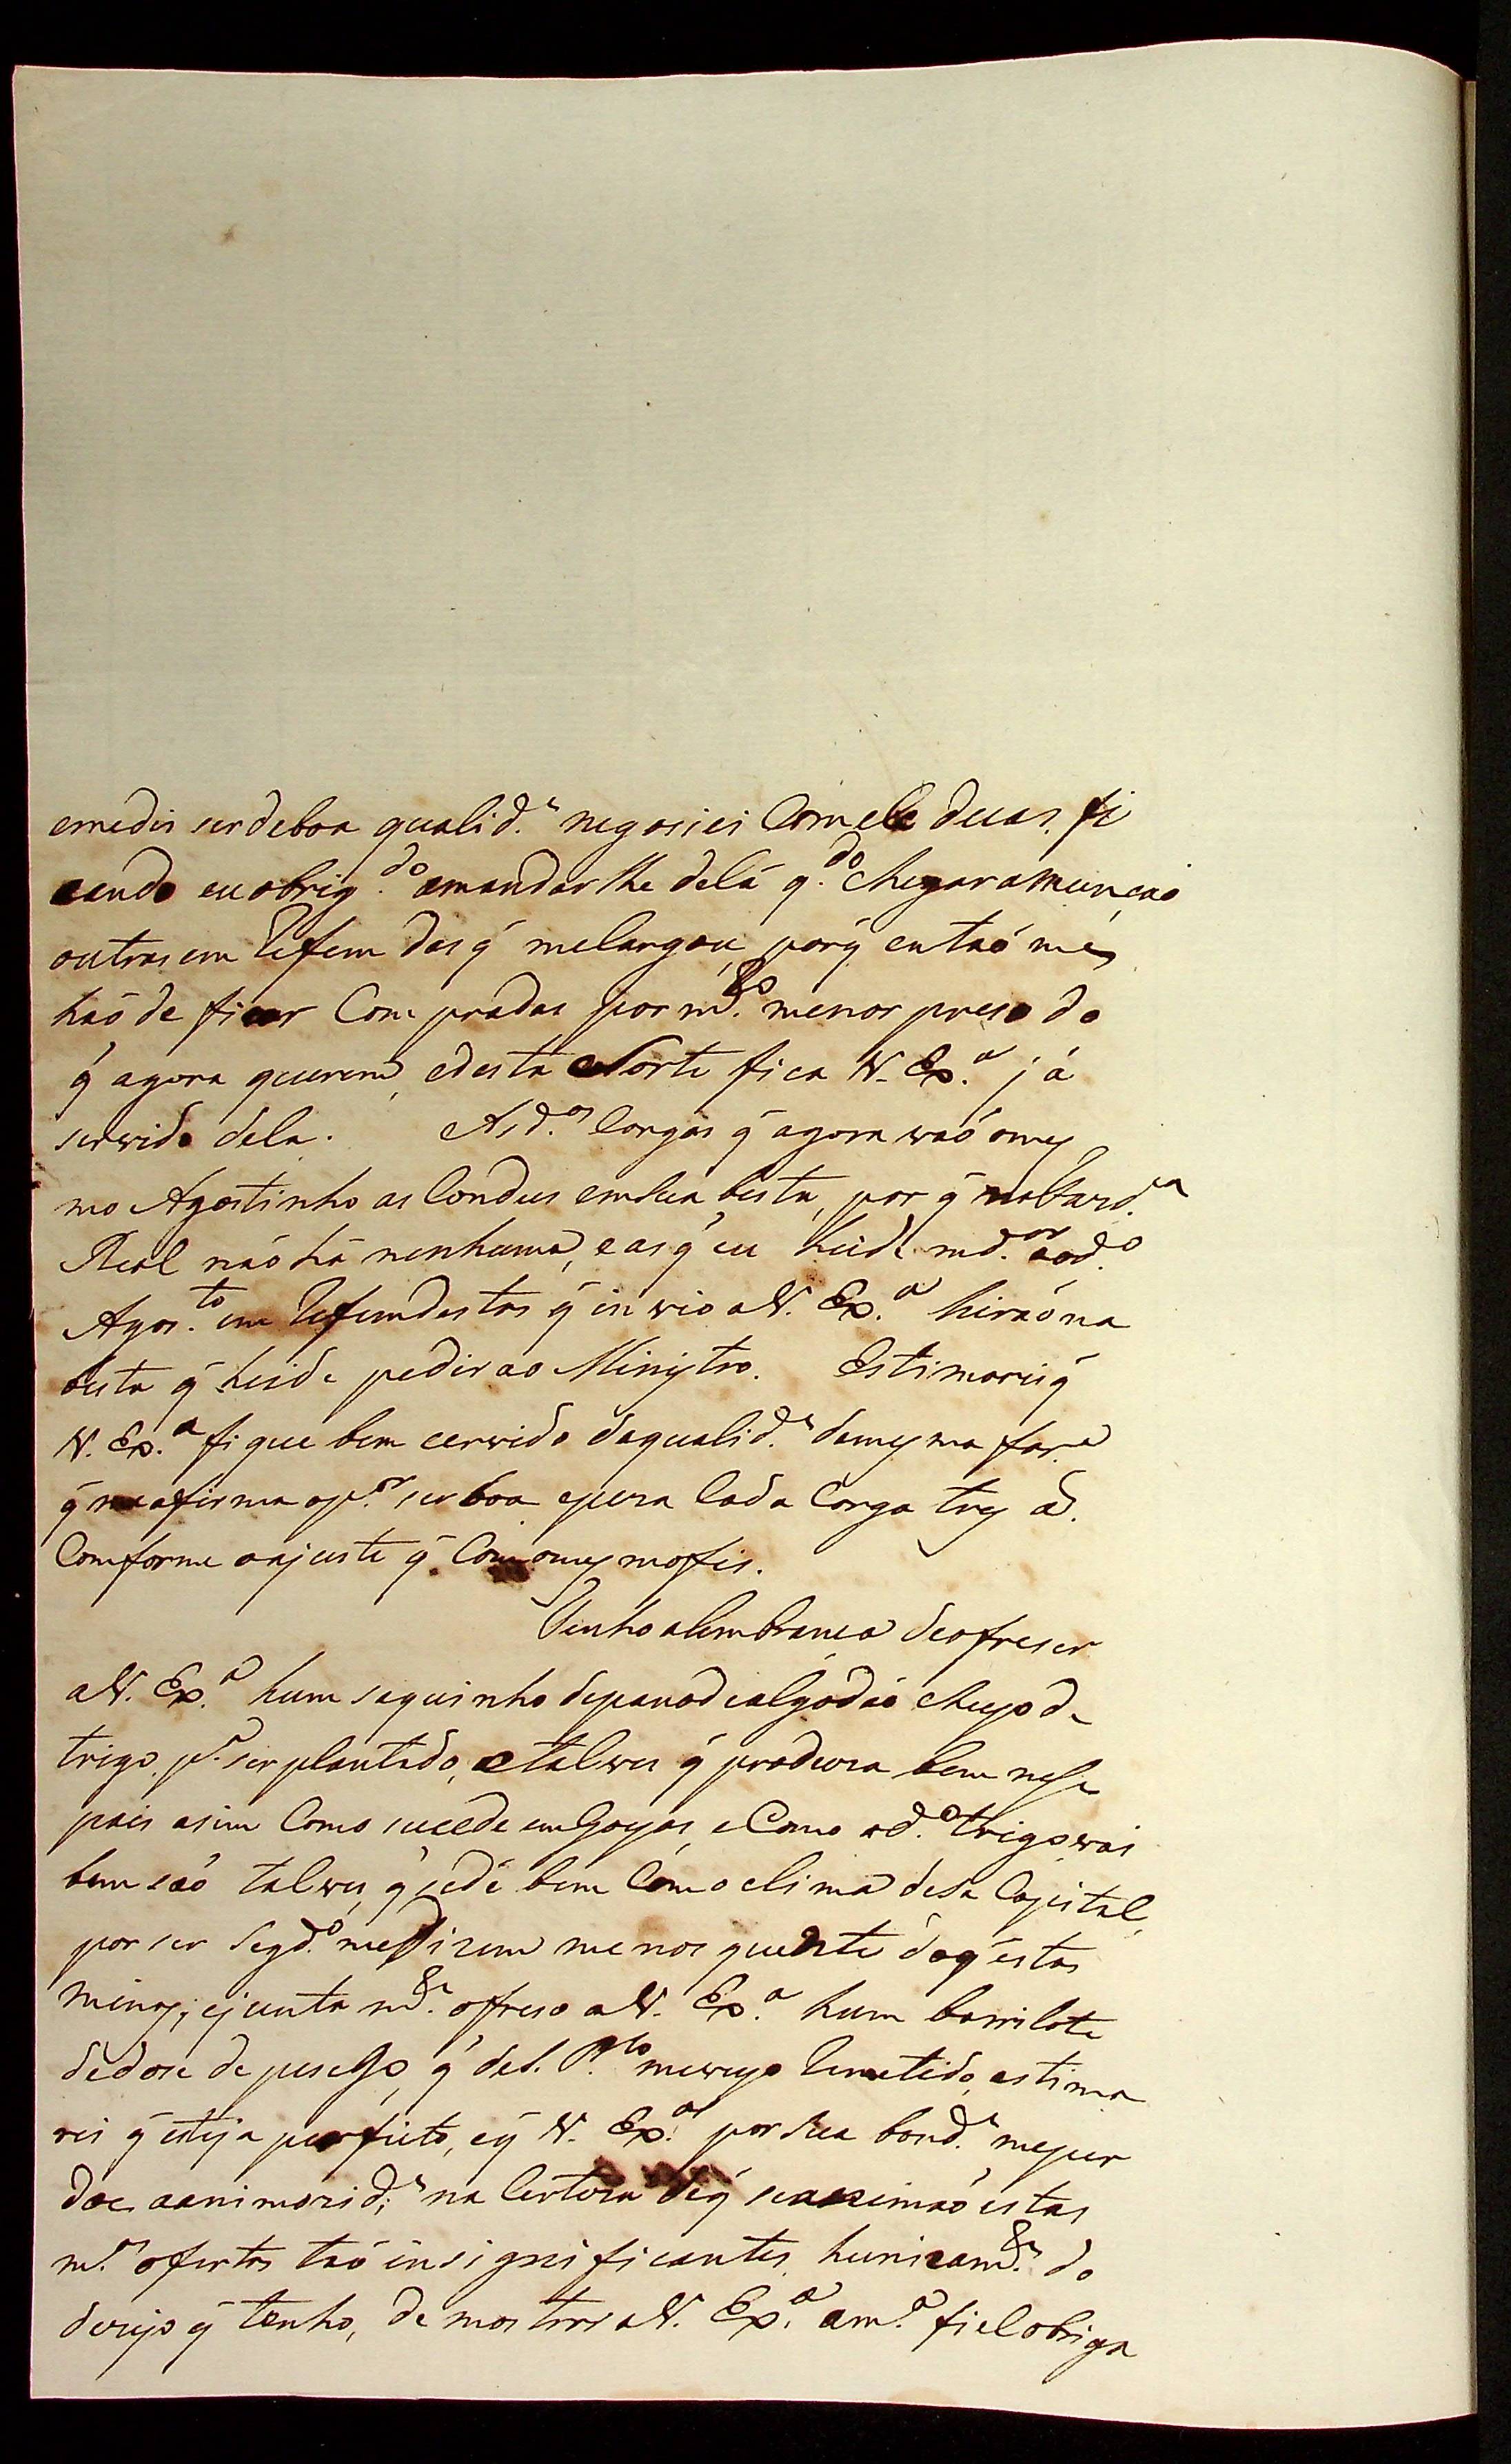 emedis ser de boa qualid.e negosiei Com ele duas, fi
cando eu obrig.do amandar lhe de lá q.do chegar a Munçaó
outras em Refem das q̃ me largou, porq̃ entaó me
haó de ficar Compradas por m.to menor preso do
q̃ agora querem, edesta Sorte fica V. Ex.a já
servido dela. As d.as Cargas q̃ agora vaó omes
mo Agostinho as Condus emsua besta, por q̃ na
Real naó há nenhuma, e as q̃ eu heide md.ar ao d.o
Agos.to em Refem destas q̃ invio a V. Ex.a hiraó na
besta q̃ heide pedir ao Ministro. Estimarei q̃
V. Ex.a fique bem cervido da qualid.e damesma far.a
q̃ me afirma o p.or ser boa epura Cada Carga tres
Comforme oajuste q̃ Com omesmo fis.
Tenho alembransa de ofreser
a V. Ex.a hum saquinho de pano de algodaó cheyo de
trigo p.a ser plantado, etalves q̃ produsa bem nese
pais asim Como sucede em Goyas, e Como o d.o trigo vai
bem saó talves q̃ se dé bem Com o clima desa Capital,
por ser Segd.o me dizem menos quente do q̃ estas
minas; ejunta m.te ofreso a V. Ex.a hum barrilote
de dose de pesego, q̃ de S. P.lo me veyo Remetido, estima
rei q̃ esteja perfeito, eq̃ V. Ex.a por sua bond.e me per
doe aanimozid.e na Certeza de q̃ se animaó estas
m.as ofertas taó insignificantes, hunicam.te do
dezejo q̃ tenho, de mostrar a V. Ex.a am.a fiel obriga